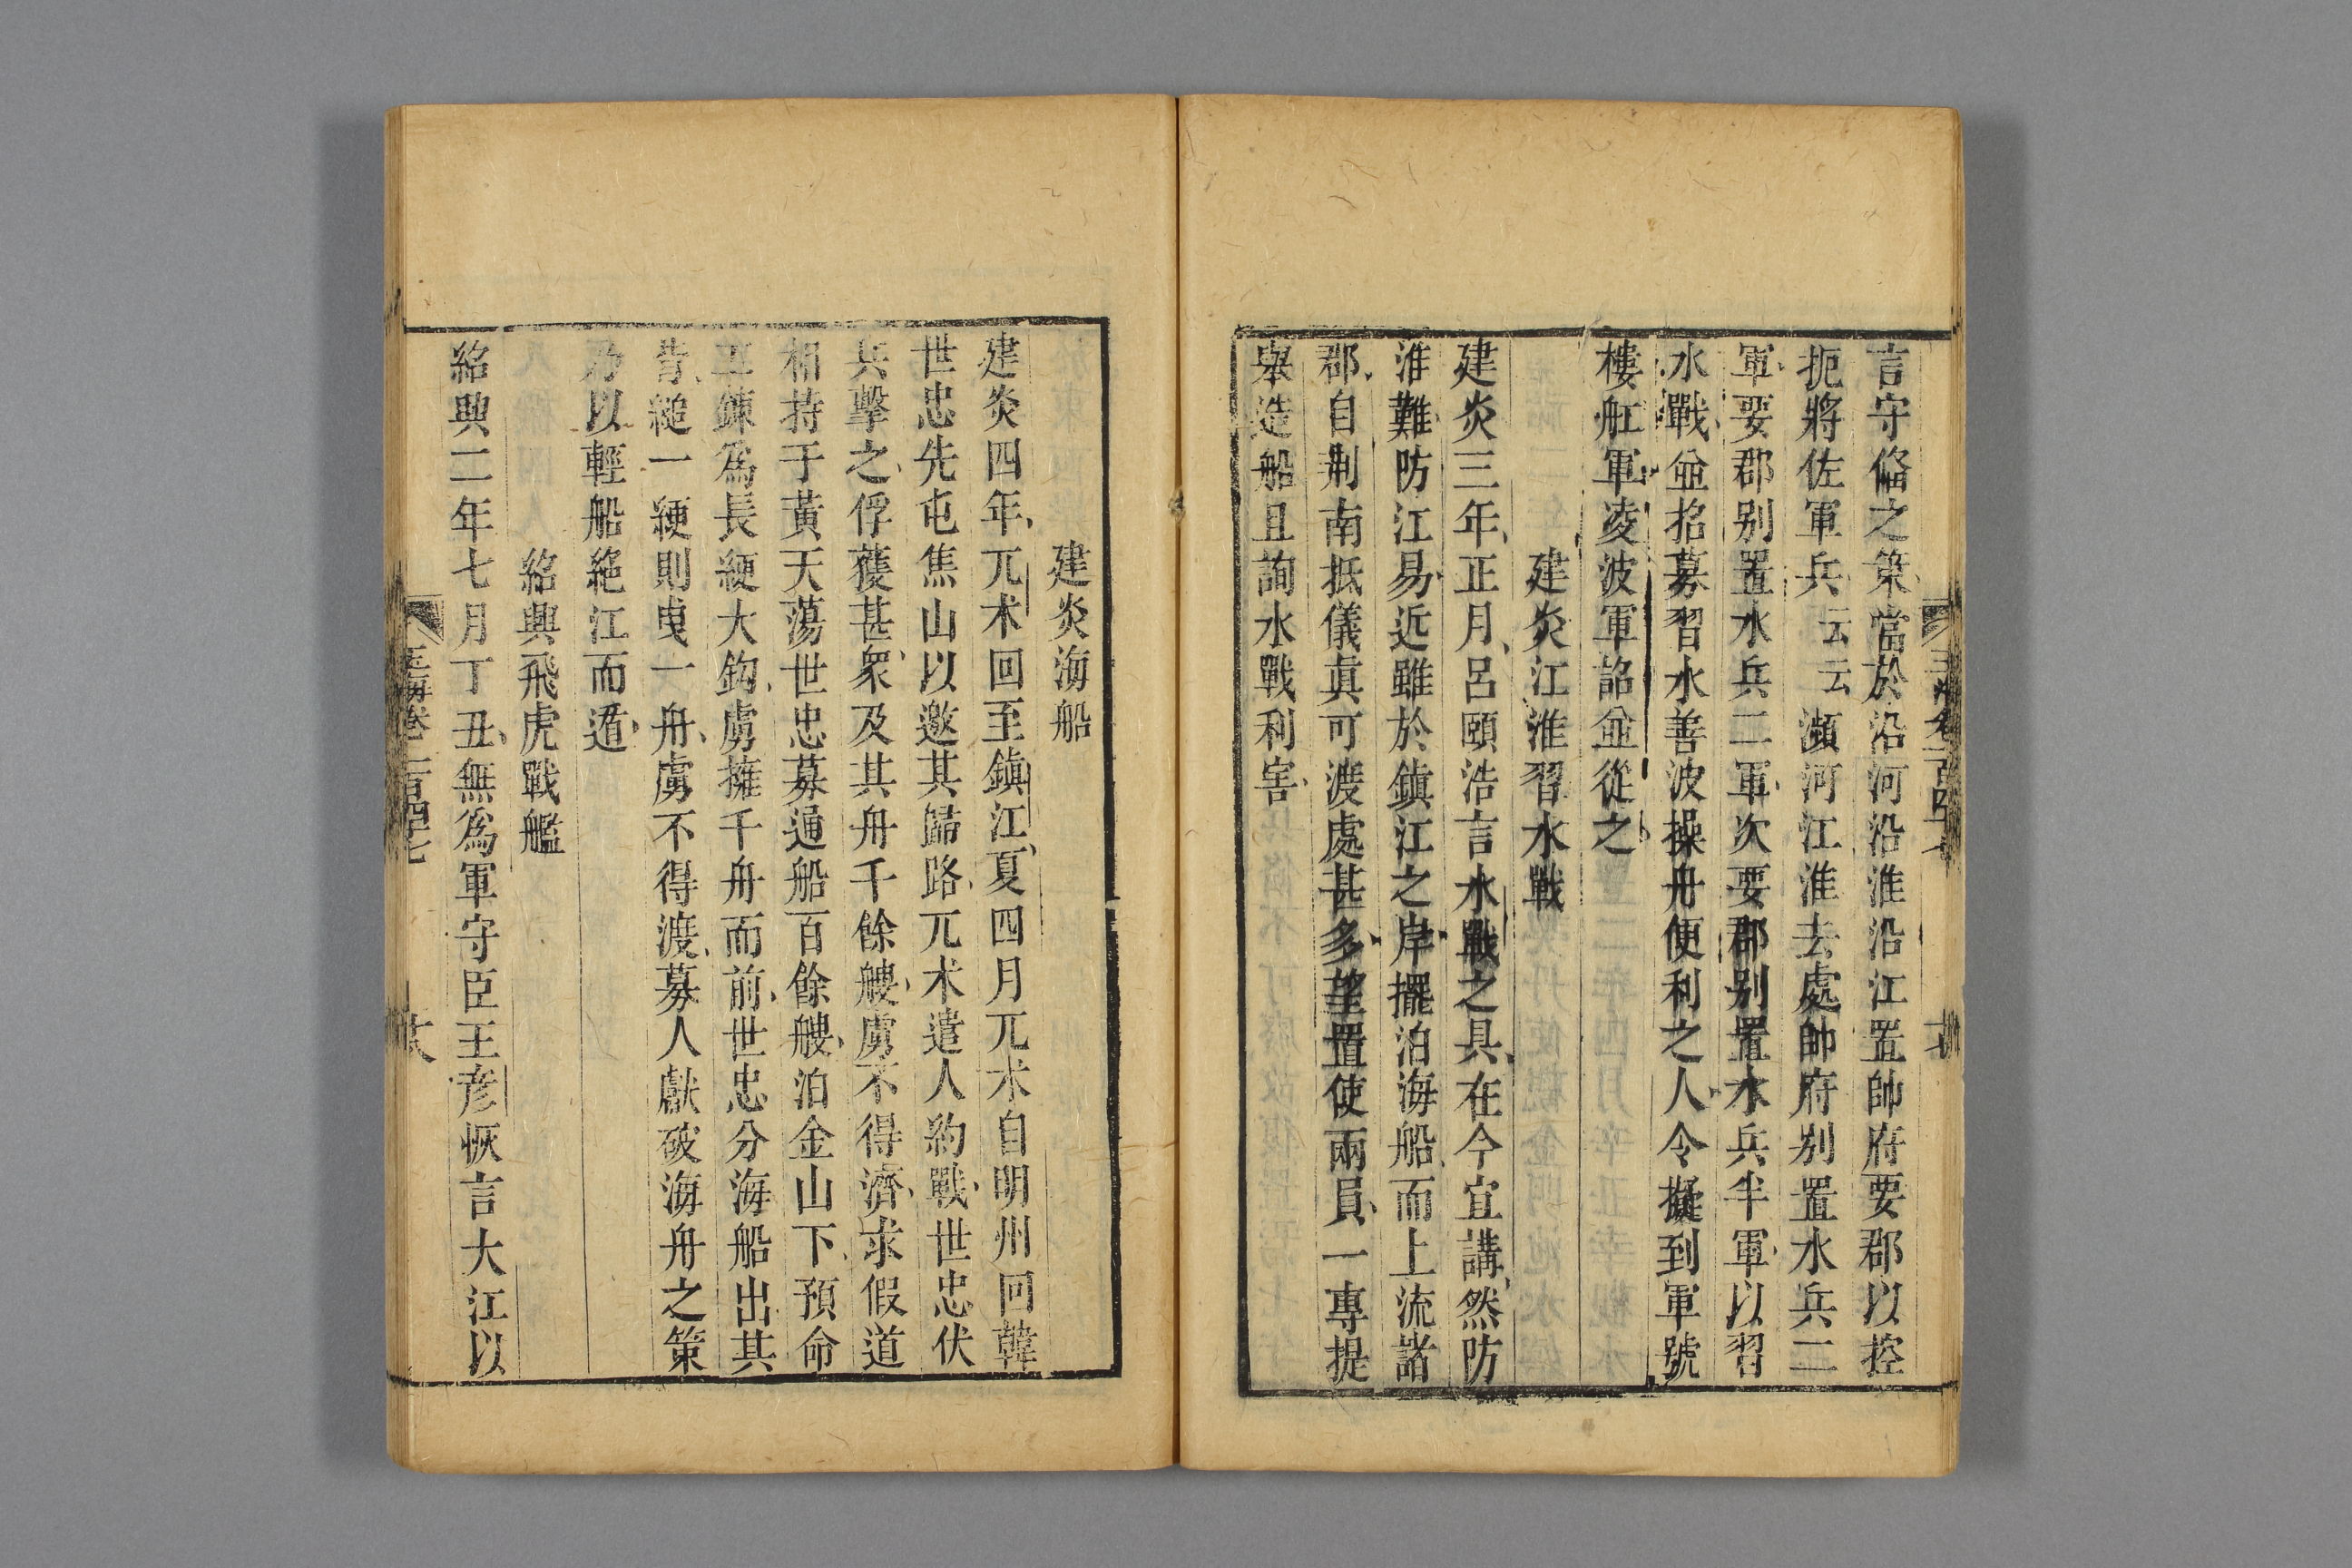 言守備之策當於沿河沿淮沿江置帥府要郡以控
扼將佐軍兵云云瀕河江淮去處帥府别置水兵二
軍要郡别置水兵二軍次要郡别置水兵半軍以習
水戰並招募習水善波操舟便利之人令擬到軍號
樓舡軍凌波軍詔並從之
建炎江淮習水戰
建炎三年正月呂頤浩言水戰之具在今宜講然防
淮難防江易近雖於鎮江之岸擺泊海船而上流諸
郡自荆南抵儀眞可渡處甚多望置使兩員一專提
舉造船且詢水戰利害
建炎海船
建炎四年兀术回至鎮江夏四月兀术自明州回韓
世忠先屯焦山以邀其歸路兀术遣人約戰世忠伏
兵擊之俘獲甚衆及其舟千餘艘虜不得濟求假道
相持于黃天蕩世忠募通船百餘艘泊金山下預命
工鍊爲長綆大鈎虜擁千舟而前世忠分海船出其
背縋一綆則曳一舟虜不得渡募人獻破海舟之策
乃以輕船絶江而遁
紹興飛虎戰艦
紹興二年七月丁丑無爲軍守臣王彦恢言大江以
玉海卷一百四十七